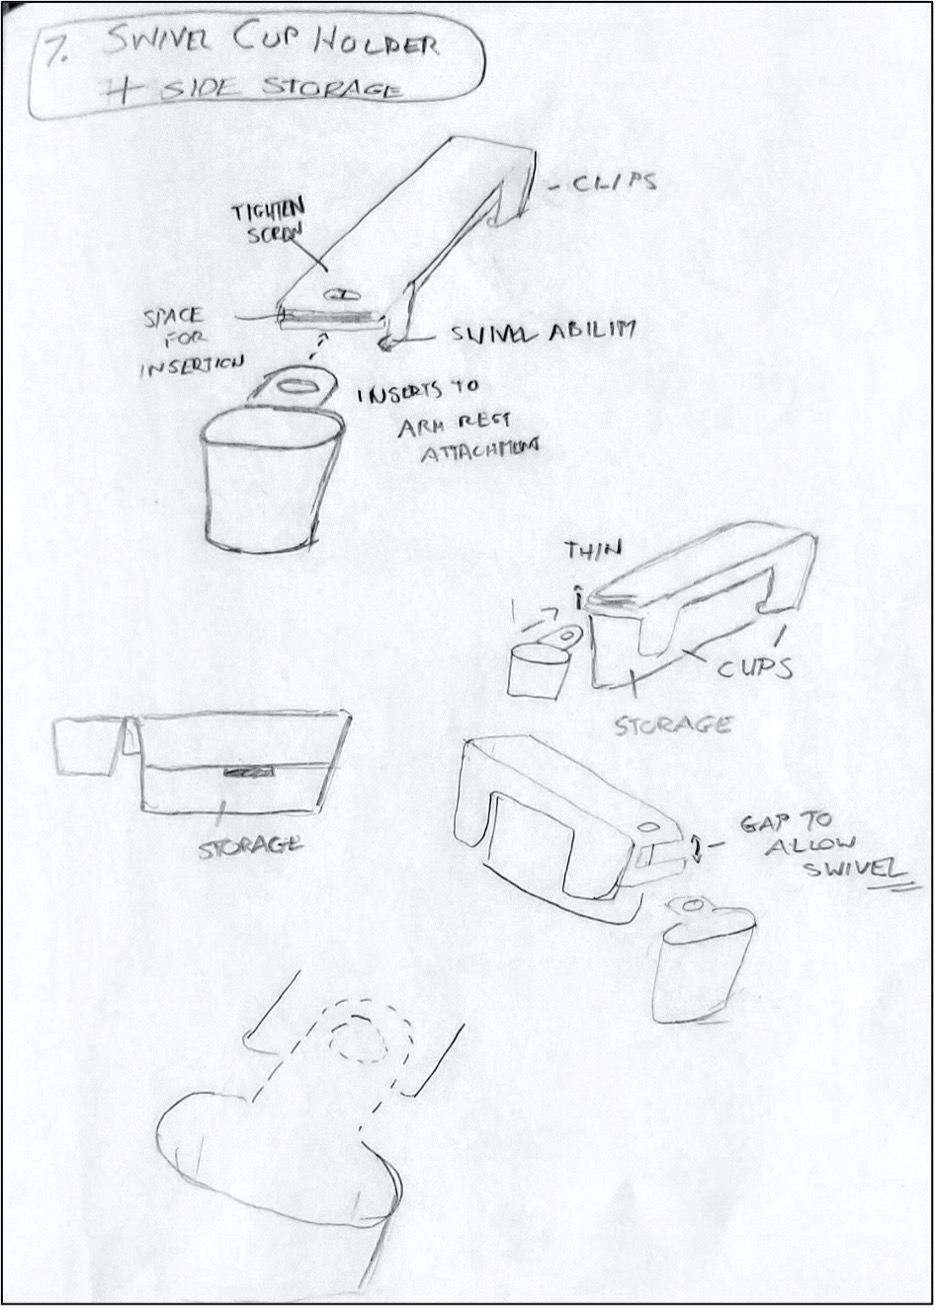 7. SWIVEL CUP HOLDER
+ SIDE STORAGE
CLIPS
TIGHTEN
SCREW
SPACE
FOR
INSERTION
SWIVEL ABILITY
INSERTS TO
ARM REST
ATTACHMENT
THIN
CLIPS
STORAGE
STORAGE
GAP TO
ALLOW
SWIVEL